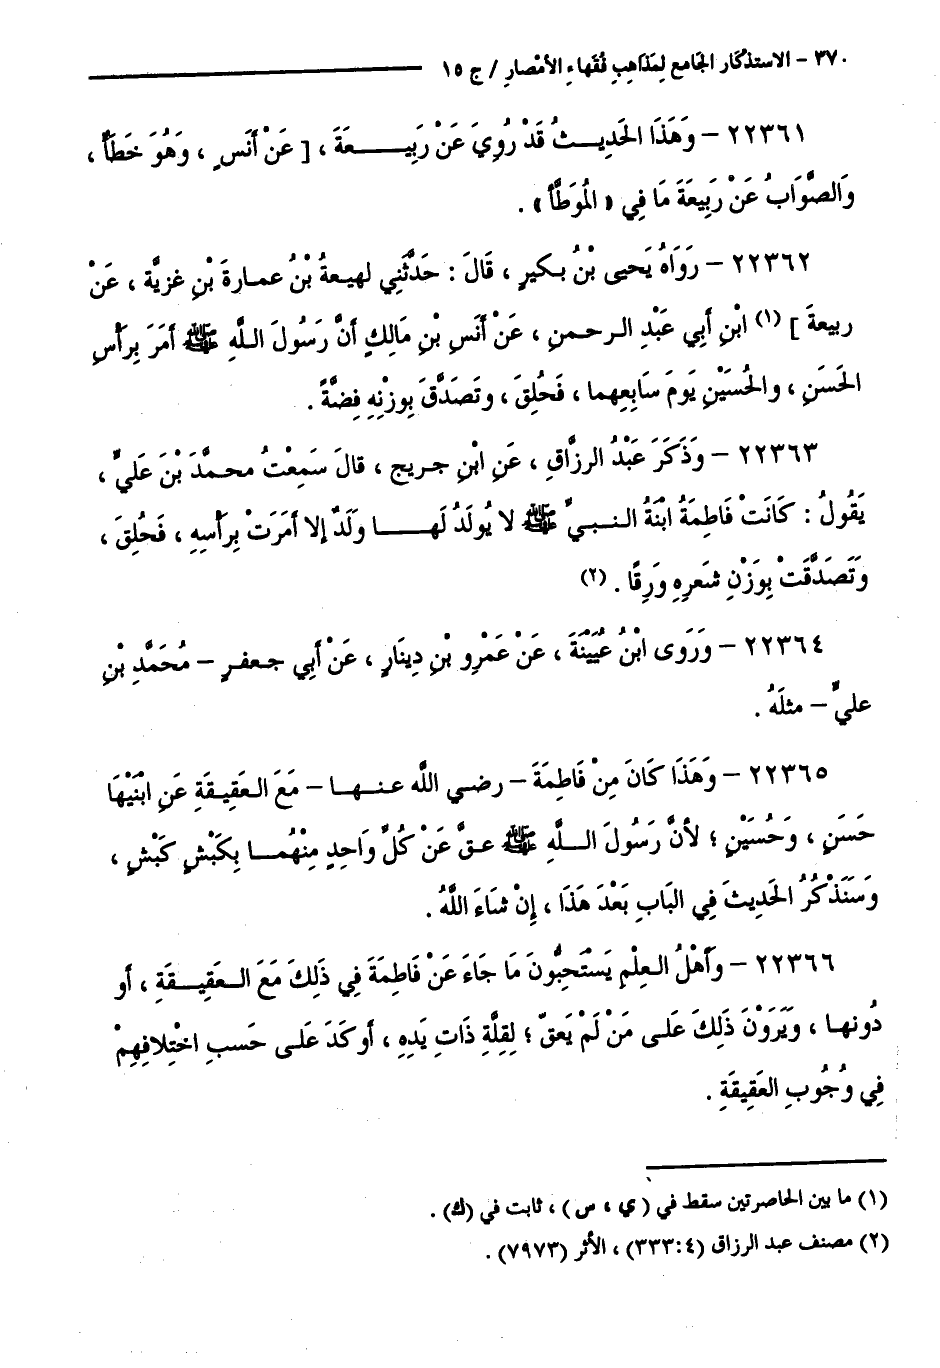 ٣٧٠ – الاستذْكَار الجَامع لِمَذَاهِبِ فُقَهاءِ الأمْصارِ / ج ١٥
٢٢٣٦١ – وَهَذَا الحَديـــثُ قَدْ رُوِيَ عَنْ رَبِيـــــــعَةَ ، [ عَنْ أنَسٍ ، وَهُوَ خَطَأٌ ،
وَالصَّوَابُ عَنْ رَبِيعَةَ مَا فِي « الْمُوَطَّأ » .
٢٢٣٦٢ – رَوَاهُ يَحيى بْنُ بـكيرٍ ، قَالَ : حَدَّثَنِي لهيـعةُ بْنُ عمـارةَ بْنِ غزيَّة ، عَنْ
ربيعةَ ] (١) ابْنِ أبِي عَبْدِ الـرحـمنِ ، عَنْ أنَسِ بْنِ مَالِكٍ أنَّ رَسُولَ الـلَّهِ ﷺ أمَرَ بِرأسِ
الحَسَنِ ، والحُسَيْنِ يَومَ سَابِعِهما ، فَحُلِقَ ، وتَصَدَّقَ بِوزْنِهِ فِضَّةً .
٢٢٣٦٣ – وَذَكَرَ عَبْدُ الرزَّاقِ ، عَنِ ابْنِ جـريج ، قالَ سَمِعْتُ محـمَّدَ بْنَ عَليٍّ ،
يَقُولُ : كَانَتْ فَاطِمَةُ ابْنَةُ الـنـبيِّ ﷺ لا يُولَدُ لَهـــــا وَلَدٌ إلا أمَرَتْ بِرَأسِهِ ، فَحُلِقَ ،
وَتَصَدَّقَتْ بِوَزْنِ شَعرِهِ وَرِقًا . (٢)
٢٢٣٦٤ – وَرَوى ابْنُ عُيَيْنَةَ ، عَنْ عَمْرِو بْنِ دِينَارٍ ، عَنْ أبِي جـعفـرٍ – مُحَمَّدِ بْنِ
عليٍّ – مثلَهُ .
٢٢٣٦٥ – وَهَذَا كَانَ مِنْ فَاطِمَةَ – رضـي اللَّه عـنـهـا – مَعَ الـعَقِيقَةِ عَنِ ابْنَيْهَا
حَسَنٍ ، وَحُسَيْنٍ ؛ لأنَّ رَسُولَ الــلَّهِ ﷺ عـقَّ عَنْ كُلِّ وَاحِدٍ مِنْهُمـــا بِكَبْشٍ كَبْشٍ ،
وَسَنَذْكُرُ الحَدِيثَ فِي البَابِ بَعْدَ هَذَا ، إِنْ شَاءَ اللَّهُ .
٢٢٣٦٦ – وَأهْلُ الـعِلْمِ يَسْتَحِبُّونَ مَا جَاءَ عَنْ فَاطِمَةَ فِي ذَلِكَ مَعَ الــعَقِيـــقَةِ ، أو
دُونهـا ، وَيَرَوْنَ ذَلِكَ عَلـى مَنْ لَمْ يَعقّ ؛ لِقِلَّةِ ذَاتِ يَدِهِ ، أوكَدَ عَلـى حَسبِ اخْتِلافِهِمْ
فِي وُجُوبِ العَقِيقَةِ .
(١) ما بين الحاصرتين سقط في ( ي ، س ) ، ثابت في (ك) .
(٢) مصنف عبد الرزاق (٤ : ٣٣٣) ، الأثر (٧٩٧٣) .